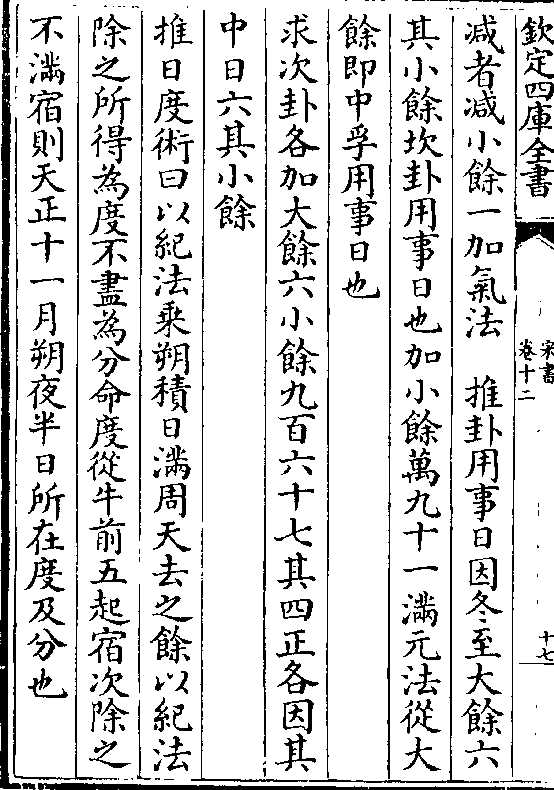 欽定四庫全書
宋書
卷十二
十七
减者减小餘一加氣法　推卦用事日因冬至大餘六
其小餘坎卦用事日也加小餘萬九十一滿元法從大
餘即中孚用事日也
求次卦各加大餘六小餘九百六十七其四正各因其
中日六其小餘
推日度術曰以紀法乗朔積日滿周天去之餘以紀法
除之所得為度不盡為分命度從牛前五起宿次除之
不滿宿則天正十一月朔夜半日所在度及分也